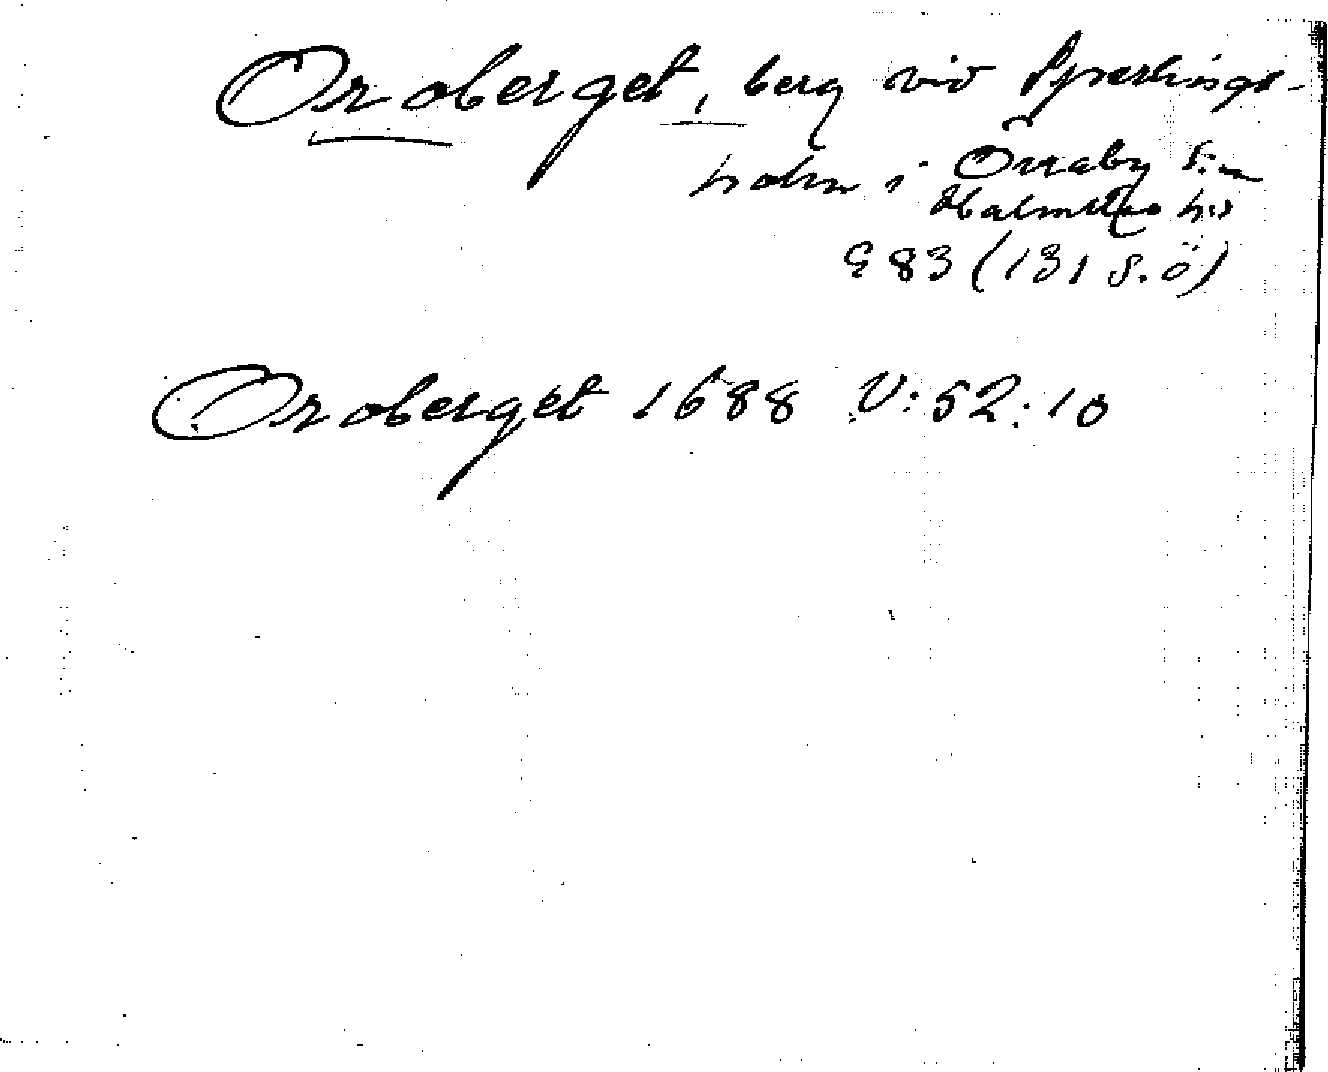 Oroberget, berg vid Sperlings-
holm i Övraby S:n
Halmstads h:d
G 83 (131 S.ö)
Oroberget 1688 V:52:10